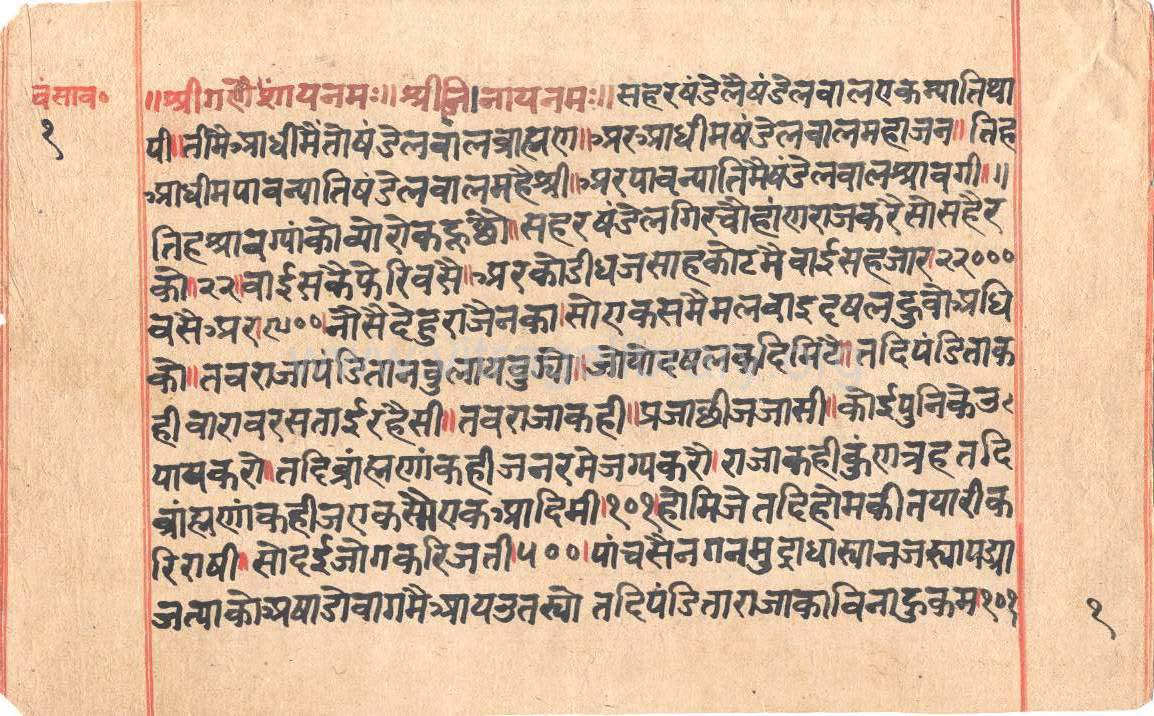 वंसाव॰
१
॥श्रीगणेशायनमः॥श्रीजिनायनमः॥सहरषंडेलैषंडेलवालएकन्यातिथा
पी॥तीमैआधीमैंतोषंडेलवालब्राह्मण॥अरआधीमषंडेलवालमहाजन॥तिह
आधीमपावन्यातिषंडेलवालमहैश्री॥अरपावन्यातिमैषंडेलवालश्रावगी॥॥
तिहश्रावग्यांकोव्योरोकहूछौ॥सहरषंडेलगिरचौहांणराजकरैसोसहैर
कौ॥२२॥वाईसकैफेरिवसै॥अरकोडीधजसाहकोटमैवाईसहजार२२०००
वसैअर॥९००॥नौसैदेहुराजैनका॥सोएकसमैमलवाइदषलहुवोअधि
कौ॥तवराजापंडितानवुलायवुज्यो॥जोयादषलकदिमिटै॥तदिपंडिताक
हीवारावरसताईरहैसी॥तवराजाकही॥प्रजाछीजजासी॥कोईपुनिकैउ
पायकरो॥तदिब्रांह्मणांकहीजनरमेजग्यकरौ॥राजाकहीकुंणत्रहतदि
ब्रांह्मणांकहीजएकसौएकआदिमी॥१०१॥होमिजेतदिहोमकीतयारीक
रिराषी॥सोदईजोगकरिजती॥५००॥पांचसैनगनमुद्राधास्यानजस्यापद्या
जत्याकोअषाडोवागमैआयउतस्यो तदिपंडिताराजाकाविनाहुकम॥१०१
१
www.vitragdham.org